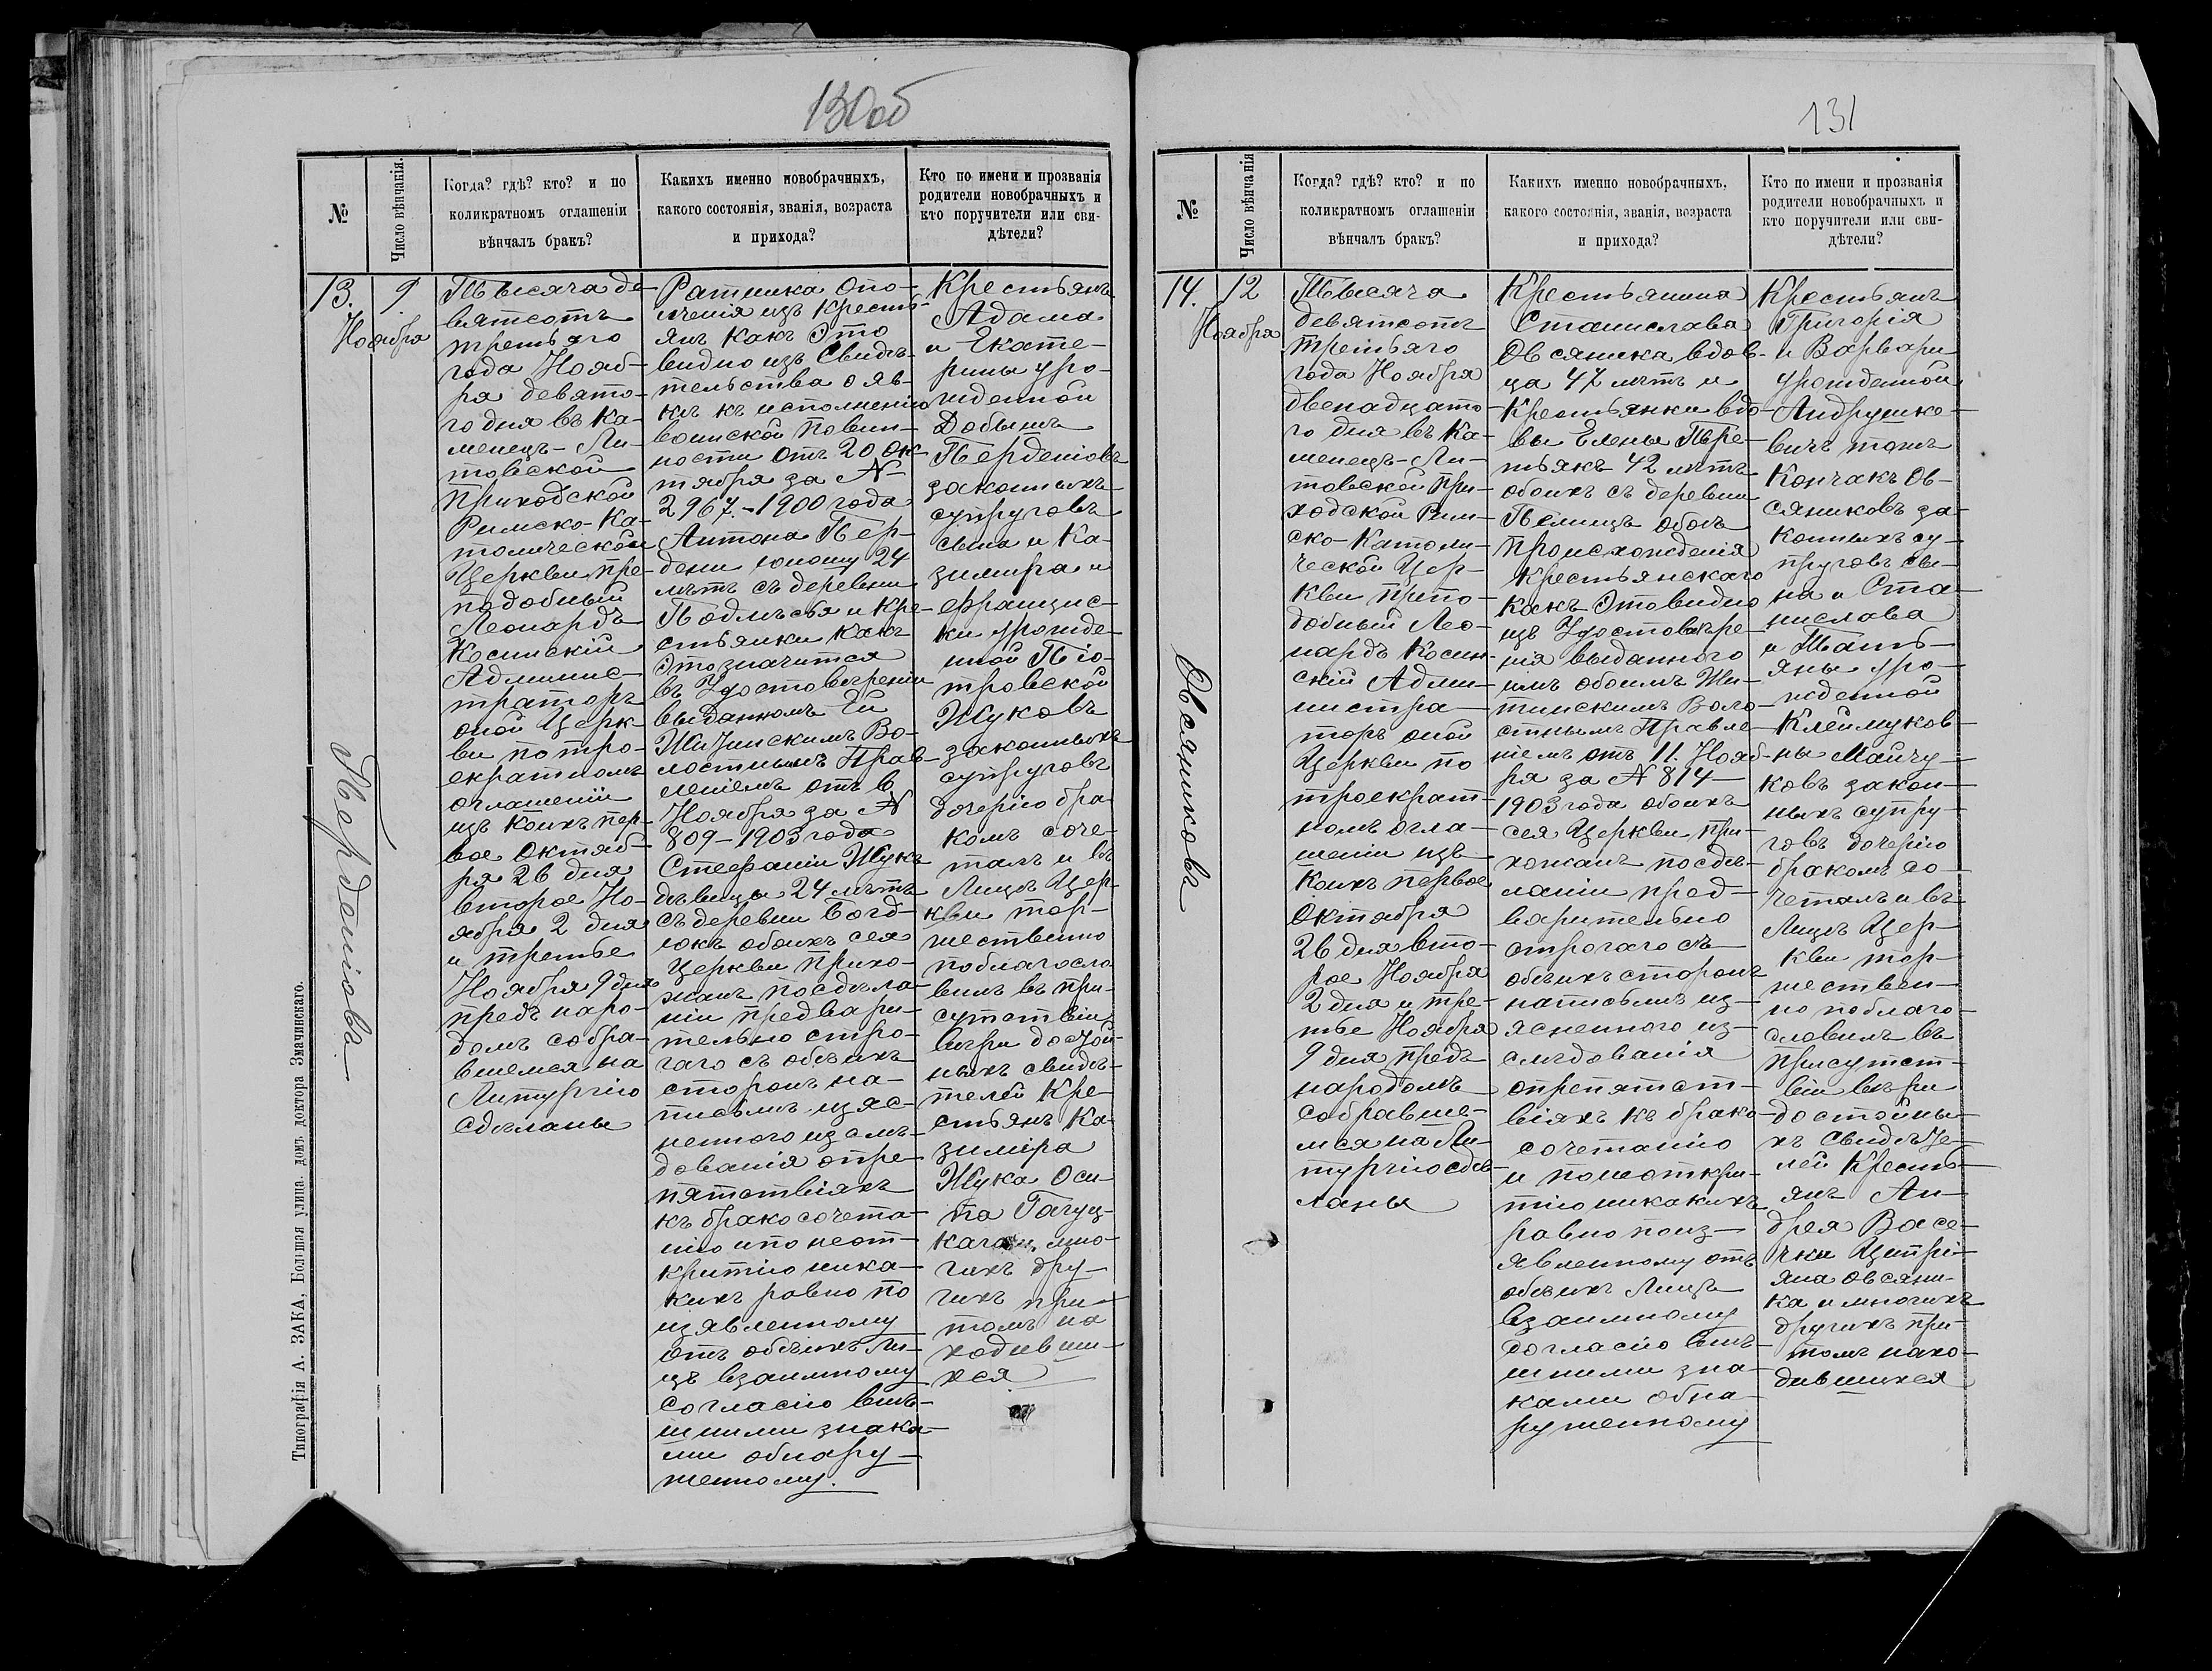 130об
№
Число вѣнчанія.
Когда? гдѣ? кто? и по
коликратномъ оглашеніи
вѣнчалъ бракъ?
Какихъ именно новобрачныхъ,
какого состоянія, званія, возраста
и прихода?
Кто по имени и прозванія
родители новобрачныхъ и
кто поручители или сви-
дѣтели?
13.
9.
Ноября
Перденіовъ
Тысяча де-
вятсотъ
третьяго
года Нояб-
ря девято-
го дня въ Ка-
менецъ-Ли-
товской
Приходской
Римско-Ка-
толической
Церкви пре-
подобный
Леонардъ
Косинскій
Админис-
траторъ
оной Церк-
ви по тро-
екратномъ
оглашеніи
изъ коихъ пер-
вое Октяб-
ря 26 дня
второе Но-
ября 2 дня
и третье
Ноября 9 дня
предъ наро-
домъ собра-
вшемся на
Литургію
сдѣланы
Ратника Опо-
лченія изъ крестъ-
янъ какъ Это
видно изъ Свидѣ-
тельства о яв-
кѣ къ исполненію
воинской повин-
ности отъ 20 Ок-
тября за №
2967 - 1900 года
Антона Пер-
дени юношу 24
лѣтъ съ деревни
Подлѣсья и Кре-
стьянки какъ
Это значится
въ Удостовѣреніи
выданномъ Ей
Житинскимъ Во-
лостнымъ Прав-
леніемъ отъ 6
Ноября за №
809 - 1903 года
Стефаніи Жукъ
дѣвицы 24 лѣтъ
съ деревни Богд-
юкъ обоихъ сея
Церкви прихо-
жанъ по сдѣла-
ніи предвари-
тельно стро-
гаго съ обѣихъ
сторонъ на-
письмѣ изяс-
неннаго изслѣ-
дованія о пре-
пятствіяхъ
къ бракосочета-
нію и по неот-
крытію ника-
кихъ равно по
изявленному
отъ обѣихъ Ли-
цъ взаимному
согласію внѣ-
шними знака-
ми обнару-
женному.
Крестьянъ
Адама
и Екате-
рины уро-
жденной
Добышъ
Перденіовъ
законныхъ
супруговъ
сына и Ка-
зимира и
Францис-
ки урожде-
нной Піо-
тровской
Жуковъ
законныхъ
супруговъ
дочерію бра-
комъ соче-
талъ и въ
Лицѣ Цер-
кви тор-
жественно
поблагосло
вилъ въ при-
сутствіи
вѣри достой-
ныхъ свидѣ-
телей Кре-
стьянъ Ка-
зиміра
Жука Оси-
па
и мно-
гихъ дру-
гихъ при
томъ на
ходивши-
хся
Типографія А. ЗАКА, Большая улица. домъ доктора Змачинскаго.
131
№
Число вѣнчанія
Когда? гдѣ? кто? и по
коликратномъ оглашеніи
вѣнчалъ бракъ?
Какихъ именно новобрачныхъ,
какого состоянія, званія, возраста
и прихода?
Кто по имени и прозванія
родители новобрачныхъ и
кто поручители или сви-
дѣтели?
14.
12
Ноября
Овсяниковъ
Тысяча
девятсотъ
третьяго
года Ноября
двенадцато-
го дня въ Ка-
менецъ-Ли-
товской При-
ходской Рим-
ско-Католи-
ческой Цер-
кви препо-
добный Лео-
нардъ Косин-
скій Адми-
нистра-
торъ оной
Церкви по
троекрат-
номъ огла-
шеніи изъ
коихъ первое
Октября
26 дня вто-
рое Ноября
2 дня и тре-
тье Ноября
9 дня предъ
народомъ
собравше-
мся на Ли-
тургію сдѣ-
ланы
Крестьянина
Станислава
Овсяника вдов-
ца 47 лѣтъ и
Крестьянки вдо-
вы Елены Пѣре-
тьякъ 42 лѣтъ
обоихъ съ деревни
Пелищъ обоъ
происхожденія
Крестьянскаго
какъ Это видно
изъ Удостовѣре-
нія выданнаго
имъ обоимъ Жи-
тинскимъ Воло-
стнымъ Правле-
ніемъ отъ 11. Нояб-
ря за № 814 -
1903 года обоихъ
сея Церкви при-
хожанъ по сдѣ-
ланіи пред-
варительно
строгаго съ
обѣихъ сторонъ
написьмѣ из-
ясненного из-
слѣдованія
о препятст-
віяхъ къ брако-
сочетанію
и по неоткры-
тію никакихъ
равно по из-
явленному отъ
обѣихъ Лицъ
взаимному
согласію внѣ-
шними зна-
ками обна-
руженному
Крестьянъ
Григорія
и Варвары
урожденной
Андрушке-
вичъ тожъ
Кончакъ Ов-
сяниковъ за-
конныхъ су-
пруговъ сы-
на и Ста-
нислава
и Тать-
яны уро-
жденной
Климуков-
ны Майчу-
ковъ закон-
ныхъ супру-
говъ дочерію
бракомъ со-
четалъ и въ
Лицѣ Цер-
кви тор-
жествен-
но поблаго-
словилъ въ
присутст-
віи вѣри
достойны-
хъ свидѣте-
лей Кресть-
янъ Ан-
дрея Васе-
чки Ципрі-
яна Овсяни-
ка и многихъ
другихъ при-
томъ нахо-
дившихся